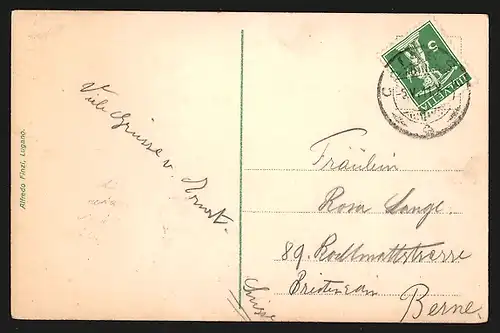 Viele Grüsse v. Ernst.
Alfredo Finzi, Lugano.
HELVETIA
5
Fräulein
Rosa Lange.
89. Rodtmattstrasse
Breitenrain
Berne.
Suisse